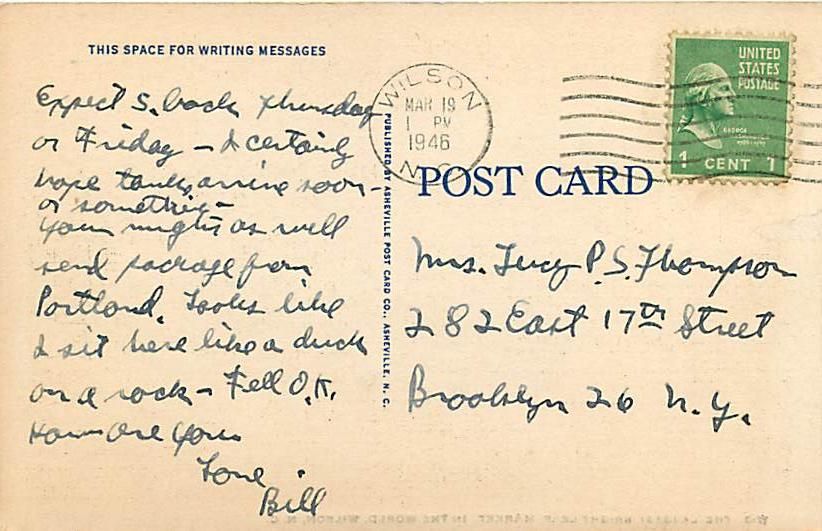 THIS SPACE FOR WRITING MESSAGES
Expect S. back Thursday
or Friday – I certainly
hope tanks arrive soon –
or something –
You might as well
send package from
Portland. Looks like
I sit here like a duck
on a rock – Feel O.K.
How are you
Love
Bill
PUBLISHED BY ASHEVILLE POST CARD CO., ASHEVILLE, N. C.
WILSON
MAR 19
1 PM
1946
N.C.
UNITED
STATES
POSTAGE
GEORGE
WASHINGTON
1 CENT 1
POST CARD
Mrs. Lucy P. S. Thompson
282 East 17th Street
Brooklyn 26 N.Y.
THE LARGEST BRIGHT LEAF MARKET IN THE WORLD, WILSON, N. C.